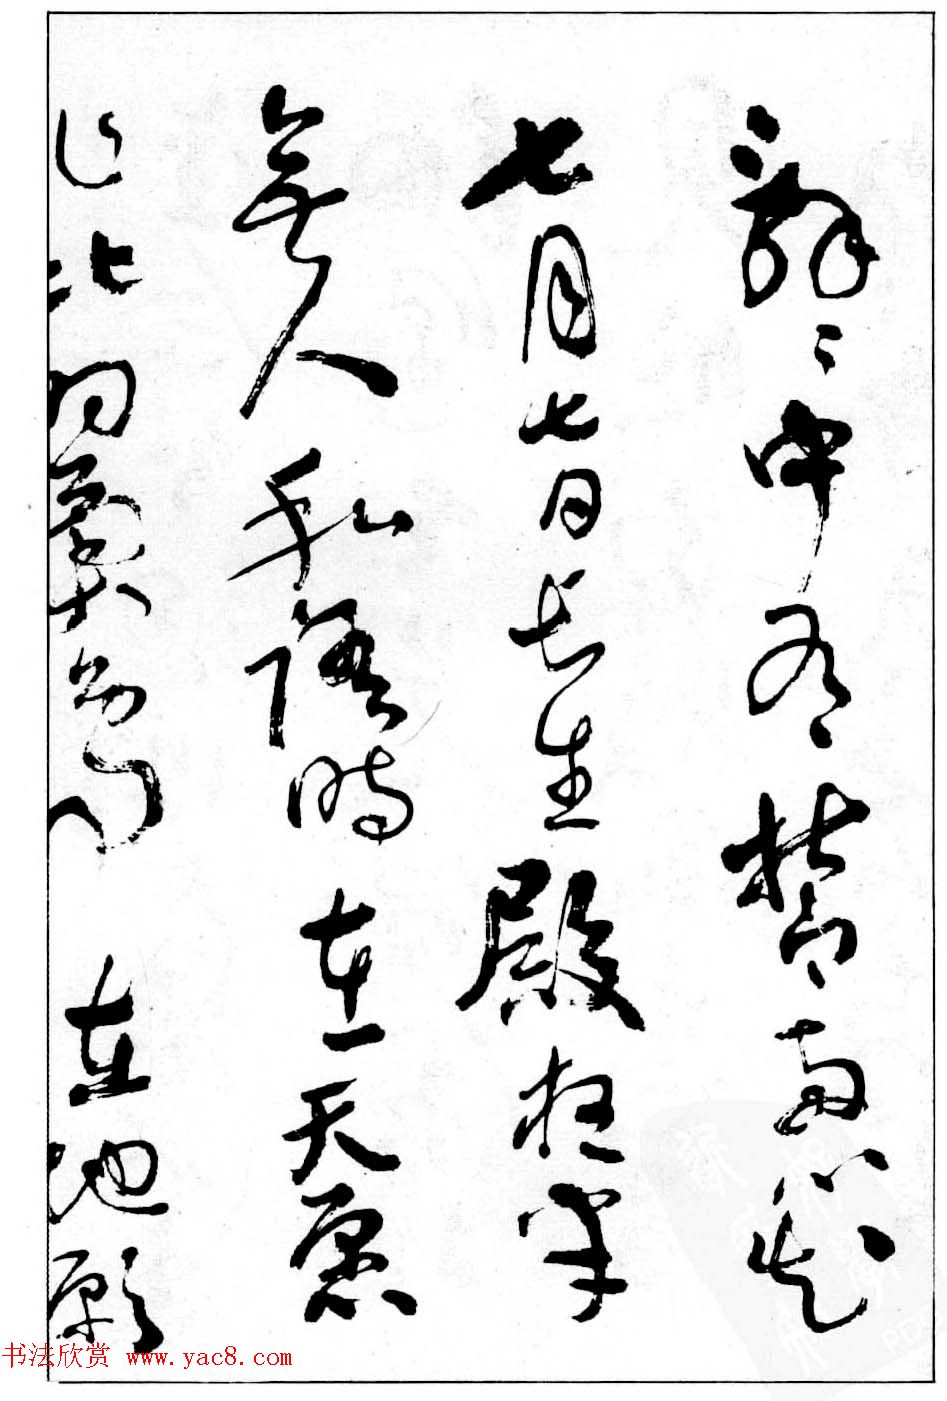 辭〻中有誓兩心知
七月七日長生殿夜半
無人私語時在天愿
作比翼鳥在地願
书法欣赏 www.yac8.com